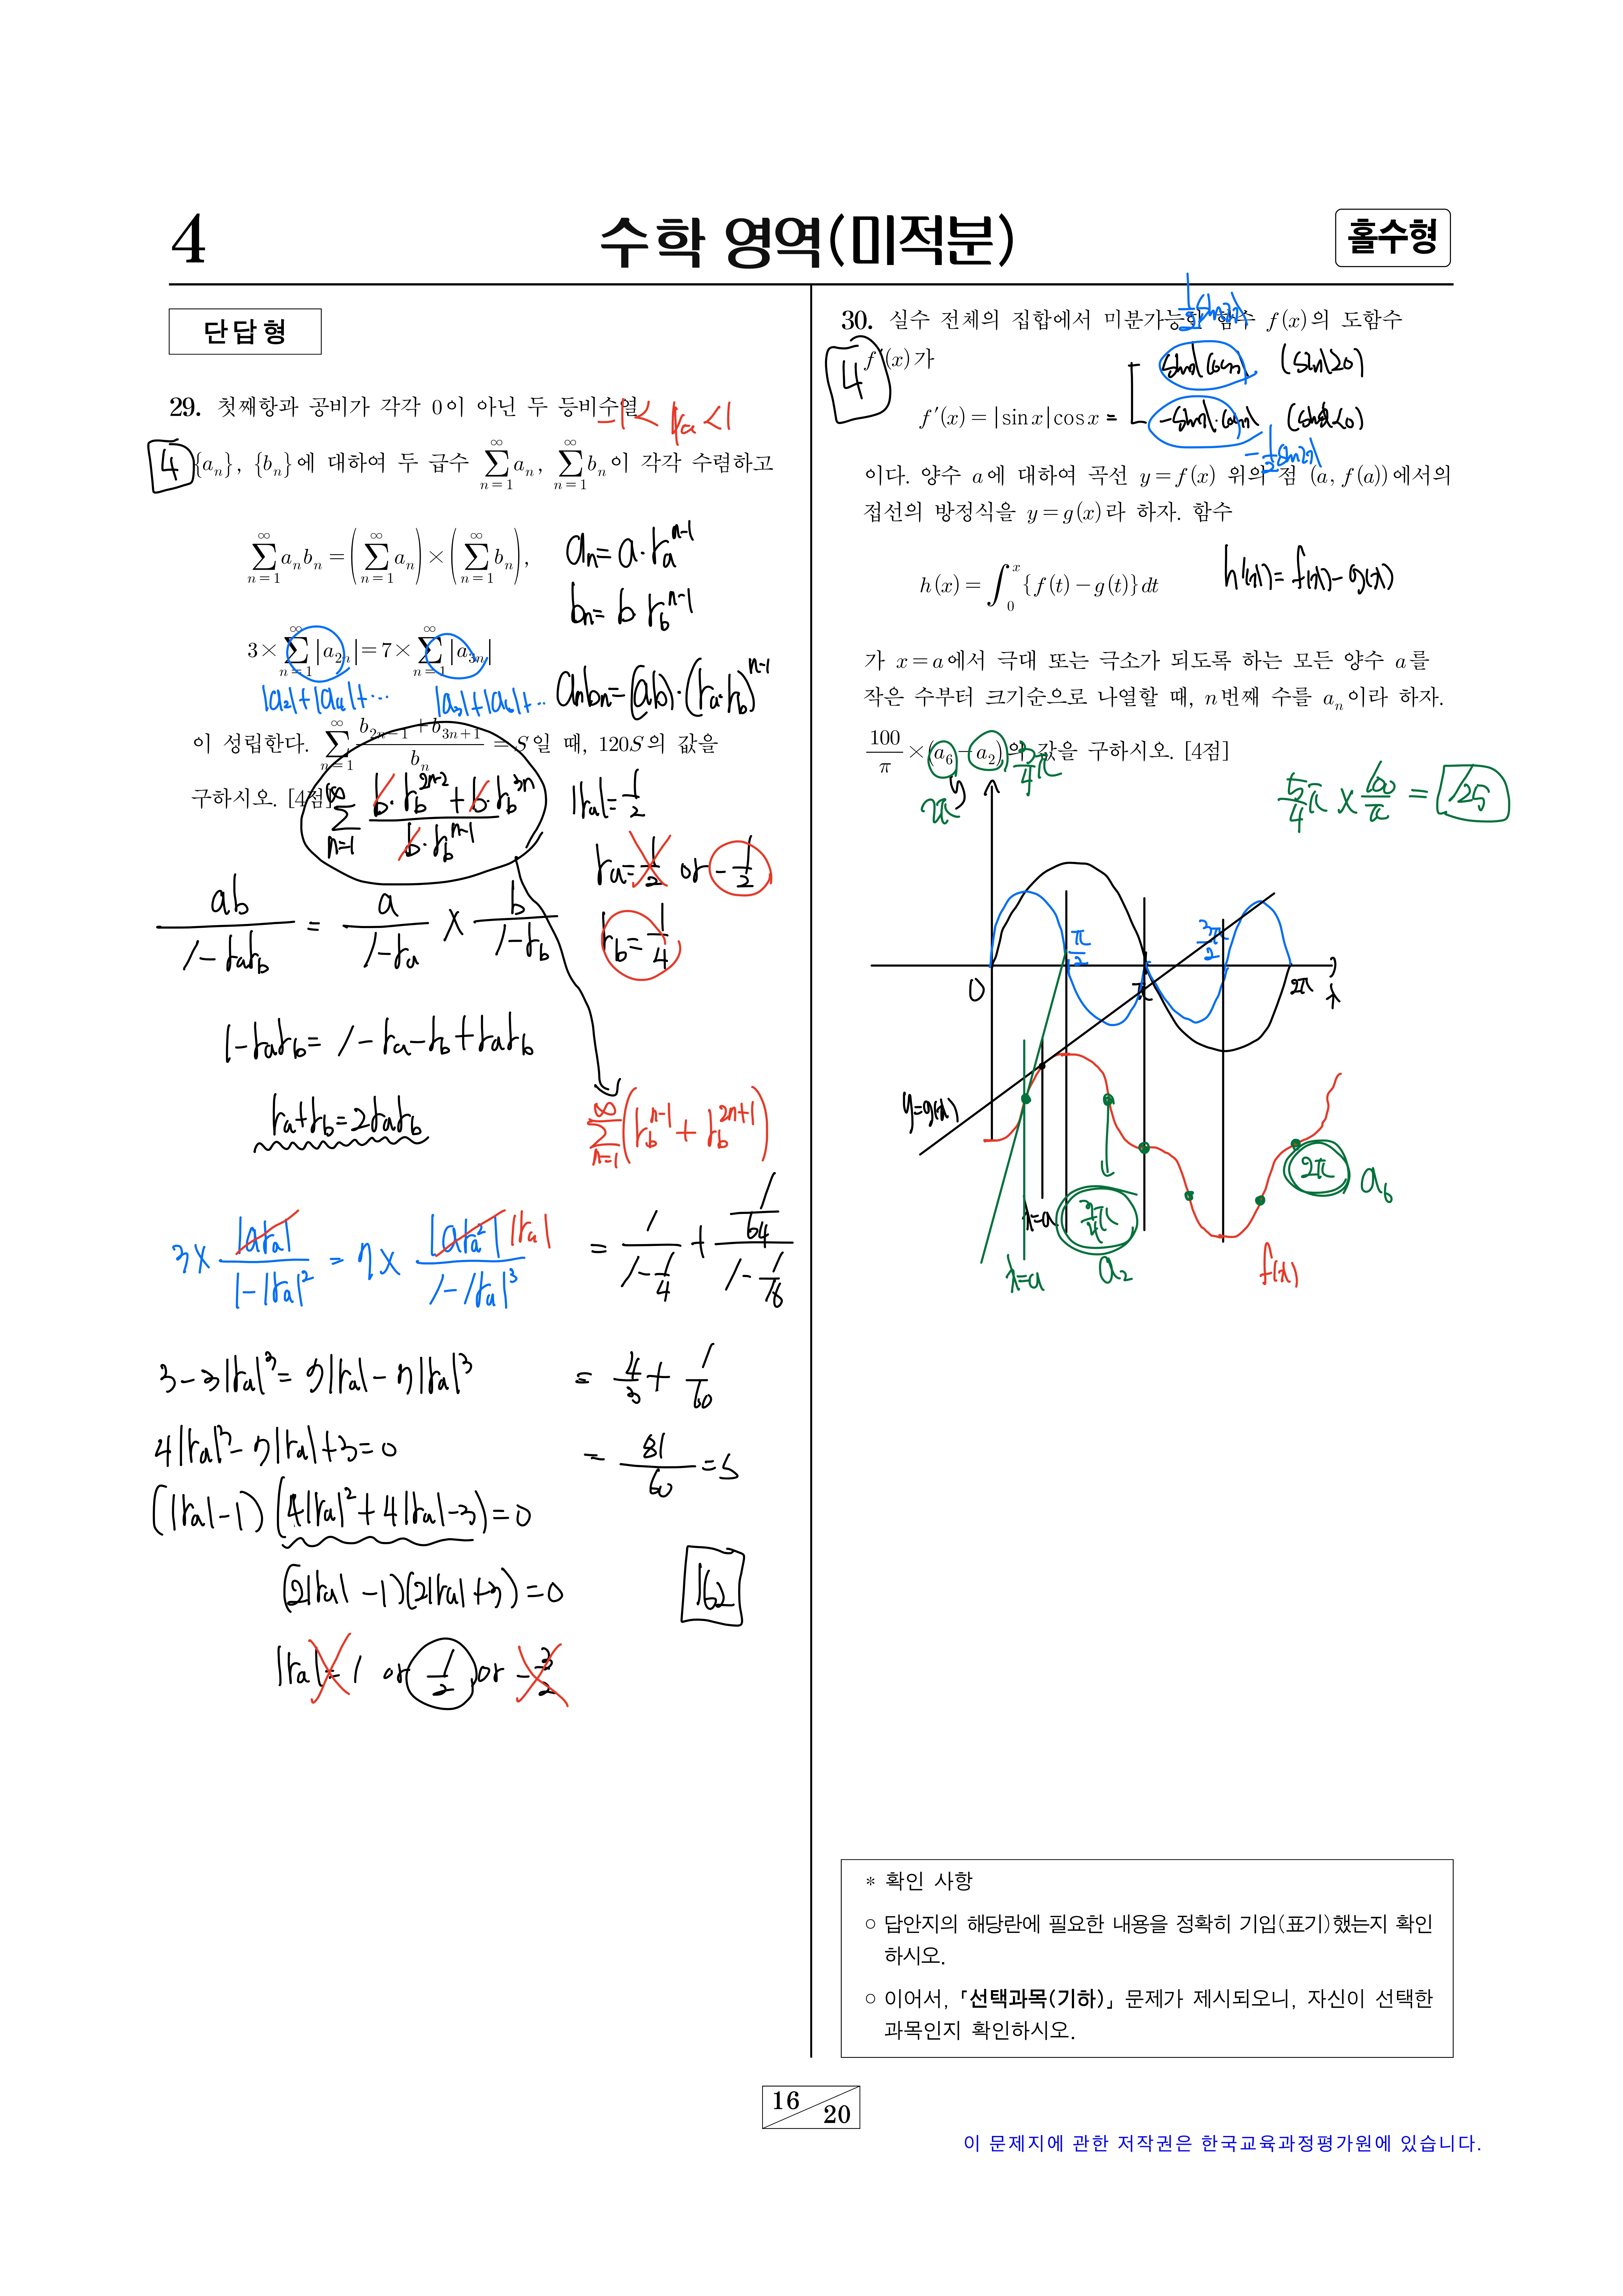 4
수학 영역(미적분)
홀수형
단답형
29. 첫째항과 공비가 각각 0이 아닌 두 등비수열
-1 < r_a < 1
4
{a_n}, {b_n}에 대하여 두 급수 ∑_{n=1}^{∞} a_n, ∑_{n=1}^{∞} b_n이 각각 수렴하고
∑_{n=1}^{∞} a_n b_n = (∑_{n=1}^{∞} a_n) × (∑_{n=1}^{∞} b_n),
a_n = a·r_a^{n-1}
b_n = b·r_b^{n-1}
3 × ∑_{n=1}^{∞} |a_{2n}| = 7 × ∑_{n=1}^{∞} |a_{3n}|
|a_2|+|a_4|+···
|a_3|+|a_6|+··
a_n b_n = (ab)·(r_a·r_b)^{n-1}
이 성립한다. ∑_{n=1}^{∞} (b_{2n-1} + b_{3n+1})/b_n = S일 때, 120S의 값을
구하시오. [4점]
∑_{n=1}^{∞} (b·r_b^{2n-2} + b·r_b^{3n})/(b·r_b^{n-1})
|r_a| = 1/2
r_a = 1/2 or -1/2
r_b = 1/4
ab/(1-r_a r_b) = a/(1-r_a) × b/(1-r_b)
1-r_a r_b = 1-r_a-r_b+r_a r_b
r_a+r_b = 2r_a r_b
∑_{n=1}^{∞} (r_b^{n-1} + r_b^{2n+1})
3 × |ar_a|/(1-|r_a|^2) = 7 × |ar_a^2| |r_a|/(1-|r_a|^3)
= 1/(1-1/4) + (1/64)/(1-1/16)
3-3|r_a|^3 = 7|r_a|-7|r_a|^3
= 4/3 + 1/60
4|r_a|^3-7|r_a|+3=0
= 81/60 = S
(|r_a|-1)(4|r_a|^2+4|r_a|-3)=0
162
(2|r_a|-1)(2|r_a|+3)=0
|r_a| = 1 or 1/2 or -3/2
30. 실수 전체의 집합에서 미분가능한 함수 f(x)의 도함수
1/2 sin2x
4
f'(x)가
sinx cosx (sinx≥0)
f'(x) = |sin x| cos x =
-sinx·cosx (sinx<0)
-1/2 sin2x
이다. 양수 a에 대하여 곡선 y=f(x) 위의 점 (a, f(a))에서의
접선의 방정식을 y=g(x)라 하자. 함수
h(x) = ∫_0^x {f(t)-g(t)}dt
h'(x) = f(x)-g(x)
가 x=a에서 극대 또는 극소가 되도록 하는 모든 양수 a를
작은 수부터 크기순으로 나열할 때, n번째 수를 a_n이라 하자.
100/π × (a_6 - a_2)의 값을 구하시오. [4점]
2π
3/4 π
5/4 π × 100/π = 125
y
π/2
3π/2
0
π
2π
x
y=g(x)
x=a
3/4 π
2π
a_6
x=a
a_2
f(x)
* 확인 사항
○ 답안지의 해당란에 필요한 내용을 정확히 기입(표기)했는지 확인
하시오.
○ 이어서, 「선택과목(기하)」 문제가 제시되오니, 자신이 선택한
과목인지 확인하시오.
16
20
이 문제지에 관한 저작권은 한국교육과정평가원에 있습니다.